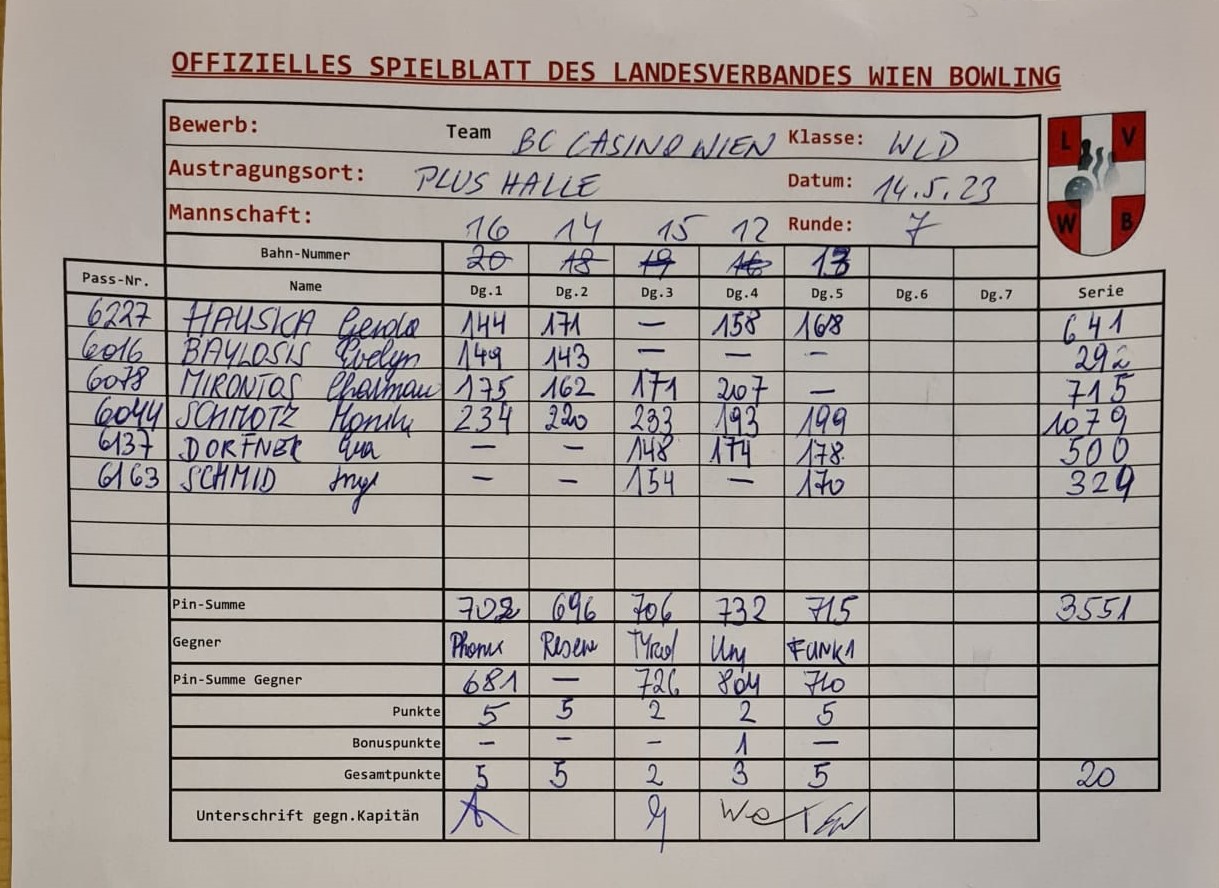 OFFIZIELLES SPIELBLATT DES LANDESVERBANDES WIEN BOWLING
Bewerb: Team BC CASINO WIEN Klasse: WLD
Austragungsort: PLUS HALLE Datum: 14.5.23
Mannschaft: Runde: 7
L V W B
16 14 15 12
Bahn-Nummer 20 18 19 16 13
Pass-Nr. Name Dg.1 Dg.2 Dg.3 Dg.4 Dg.5 Dg.6 Dg.7 Serie
6227 HAUSKA Gerda 144 171 — 158 168 641
6016 BAYLOSIS Evelyn 149 143 — — — 292
6078 MIRONTOS 175 162 171 207 — 715
6044 SCHMOTZ 234 220 233 193 199 1079
6137 DORFNER Eva — — 148 174 178 500
6163 SCHMID Inge — — 154 — 170 324
Pin-Summe 702 696 706 732 715 3551
Gegner Phönix Reserve Tyrol FUNK1
Pin-Summe Gegner 681 — 726 804 710
Punkte 5 5 2 2 5
Bonuspunkte — — — 1 —
Gesamtpunkte 5 5 2 3 5 20
Unterschrift gegn.Kapitän